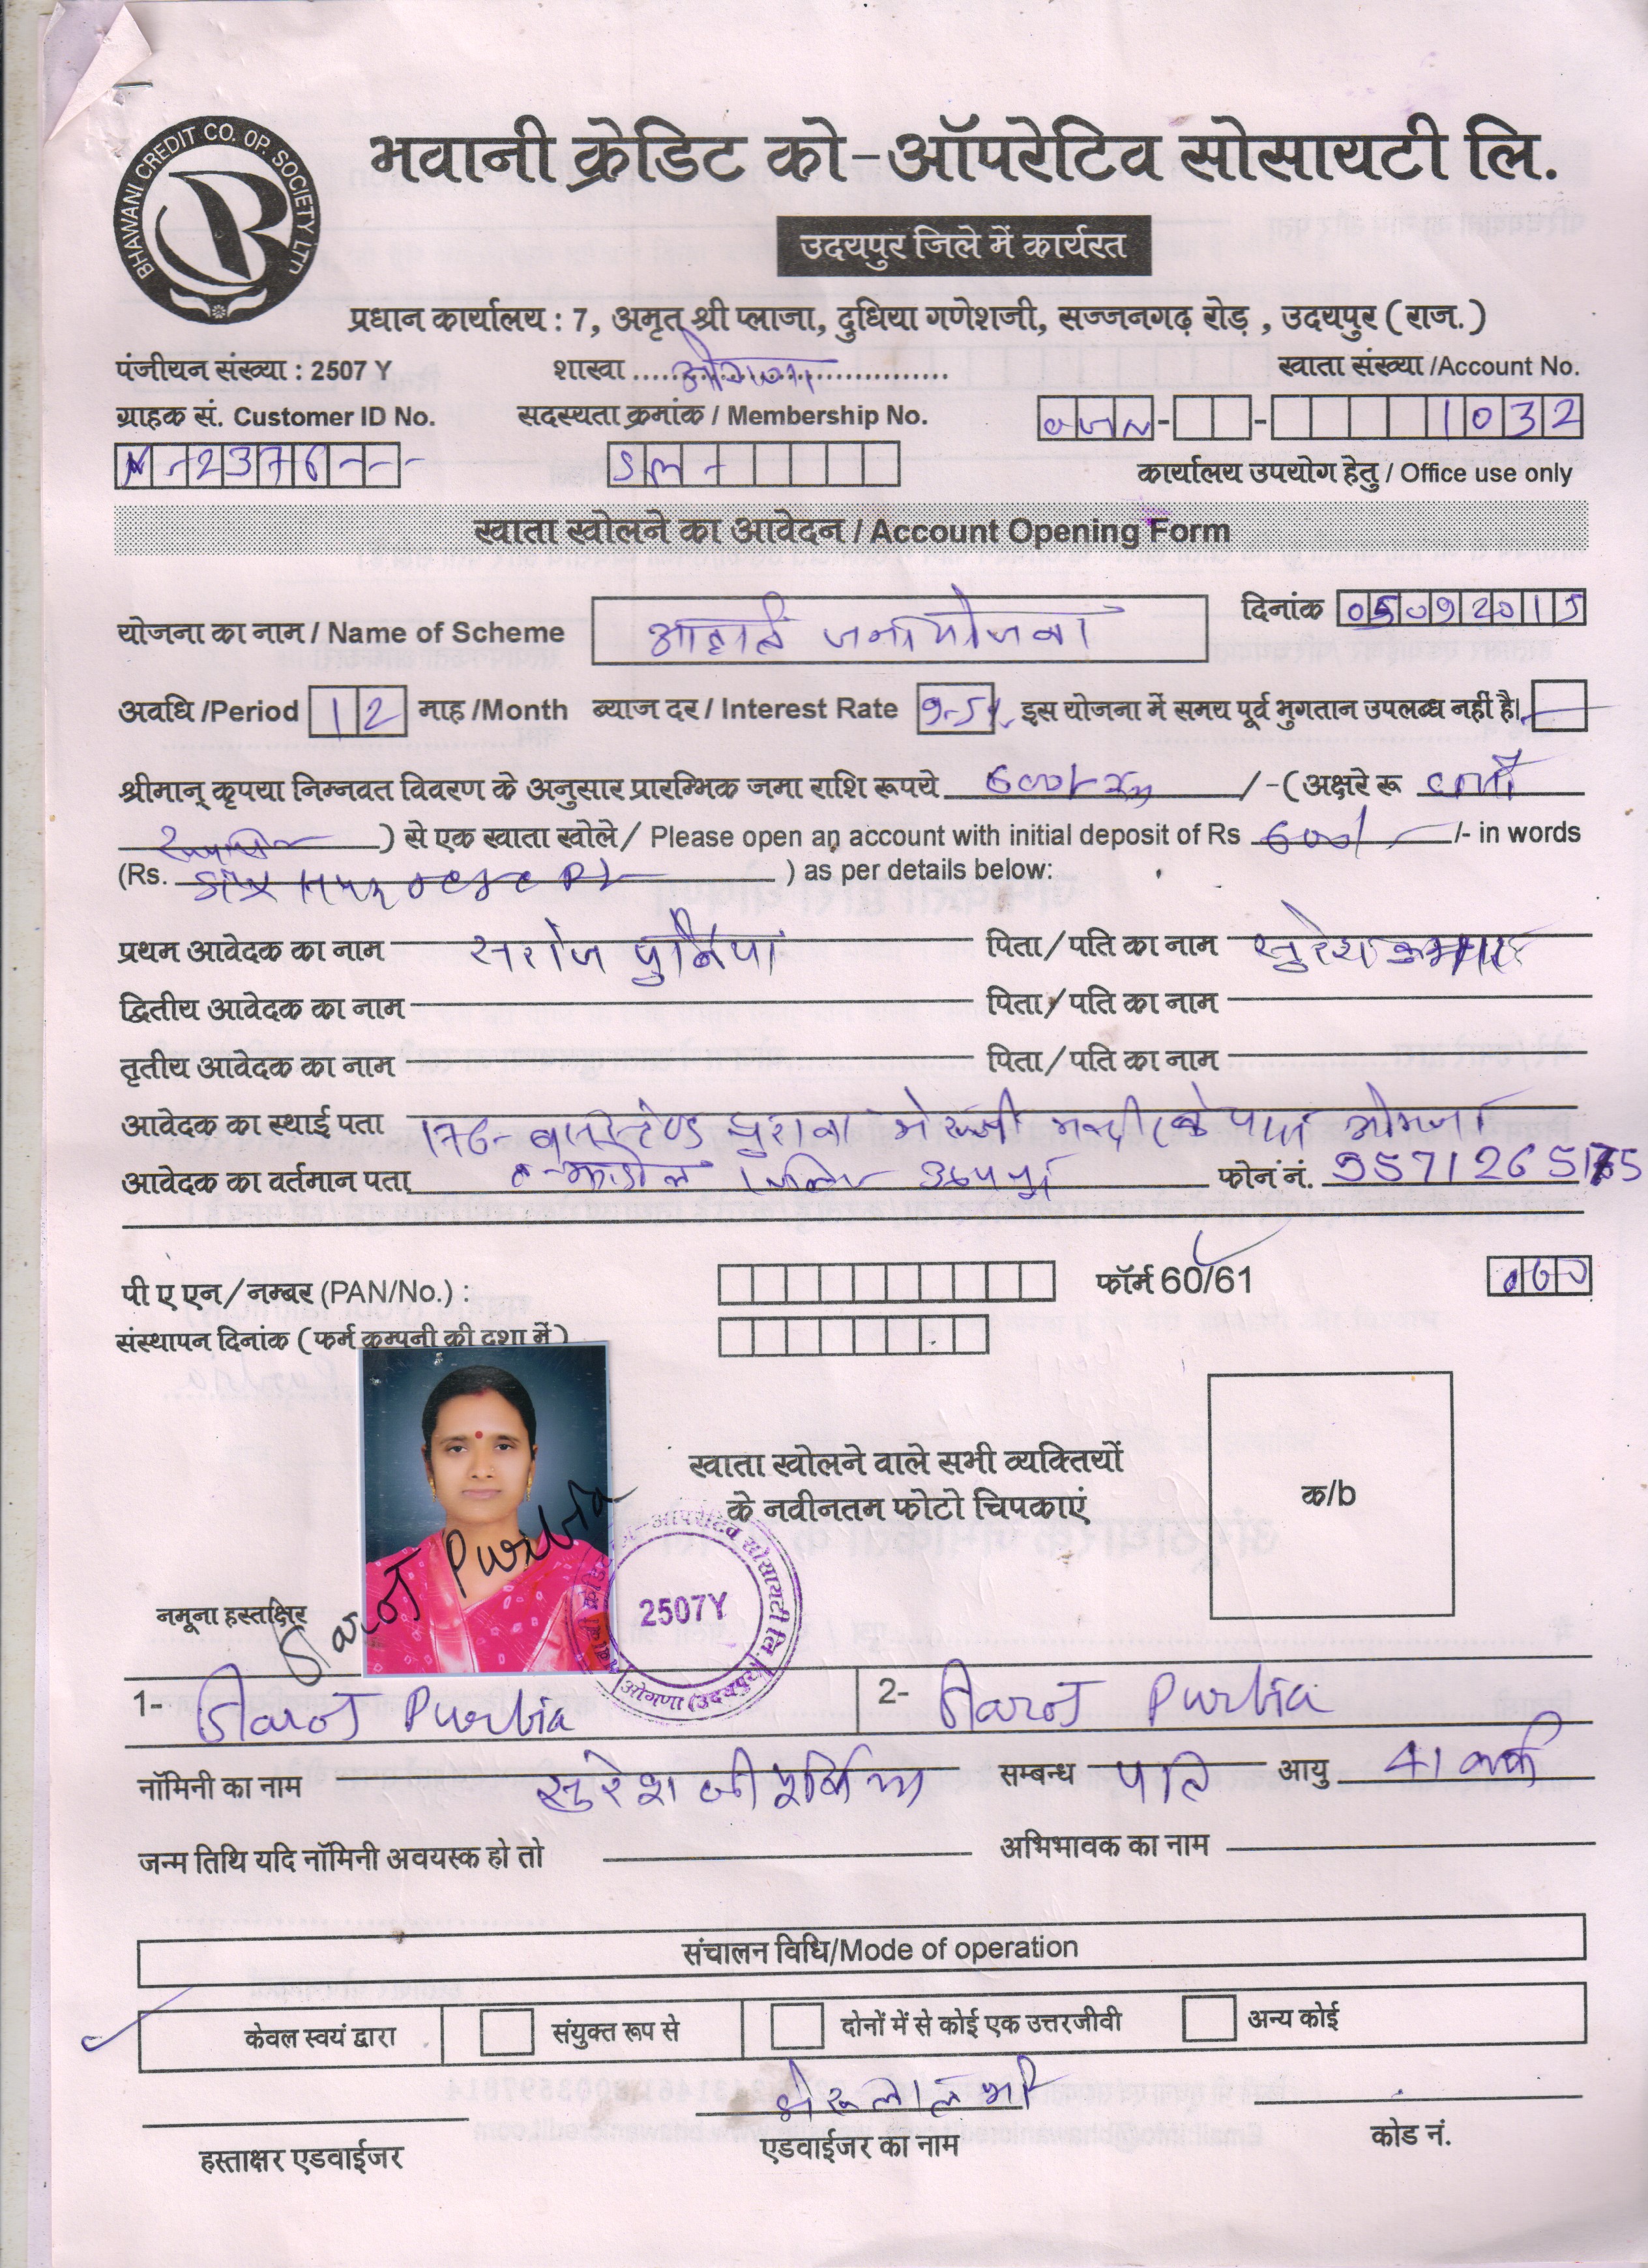 BHAWANI CREDIT CO. OP. SOCIETY LTD
भवानी क्रेडिट को-ऑपरेटिव सोसायटी लि.
उदयपुर जिले में कार्यरत
प्रधान कार्यालय : 7, अमृत श्री प्लाजा, दुधिया गणेशजी, सज्जनगढ़ रोड़ , उदयपुर ( राज. )
पंजीयन संख्या : 2507 Y शाखा ओगणा खाता संख्या /Account No.
ग्राहक सं. Customer ID No. सदस्यता क्रमांक / Membership No. 1032
M-2376---
कार्यालय उपयोग हेतु / Office use only
खाता खोलने का आवेदन / Account Opening Form
योजना का नाम / Name of Scheme दिनांक 05092015
अवधि /Period 12 माह /Month ब्याज दर / Interest Rate 9.5% इस योजना में समय पूर्व भुगतान उपलब्ध नहीं है।
श्रीमान् कृपया निम्नवत विवरण के अनुसार प्रारम्भिक जमा राशि रूपये 600/- /- ( अक्षरे रू
) से एक खाता खोले / Please open an account with initial deposit of Rs 600/- /- in words
(Rs. ) as per details below:
प्रथम आवेदक का नाम सरोज पुर्बिया पिता / पति का नाम सुरेश कुमार
द्वितीय आवेदक का नाम पिता / पति का नाम
तृतीय आवेदक का नाम पिता / पति का नाम
आवेदक का स्थाई पता 176- बसस्टेण्ड पुराना के पास ओगणा
आवेदक का वर्तमान पता झाडोल जिला उदयपुर फोन नं.
पी ए एन / नम्बर (PAN/No.) : फॉर्म 60/61
संस्थापन दिनांक ( फर्म कम्पनी की दशा में )
खाता खोलने वाले सभी व्यक्तियों
के नवीनतम फोटो चिपकाएं
क/b
Saroj Purbia
2507Y
ओगणा (उदयपुर)
नमूना हस्ताक्षिर
1- Saroj Purbia 2- Saroj Purbia
नॉमिनी का नाम सुरेश जी पूर्बिया सम्बन्ध पति आयु 41 वर्ष
जन्म तिथि यदि नॉमिनी अवयस्क हो तो अभिभावक का नाम
संचालन विधि/Mode of operation
केवल स्वयं द्वारा संयुक्त रूप से दोनों में से कोई एक उत्तरजीवी अन्य कोई
भैरूलाल
हस्ताक्षर एडवाईजर एडवाईजर का नाम कोड नं.